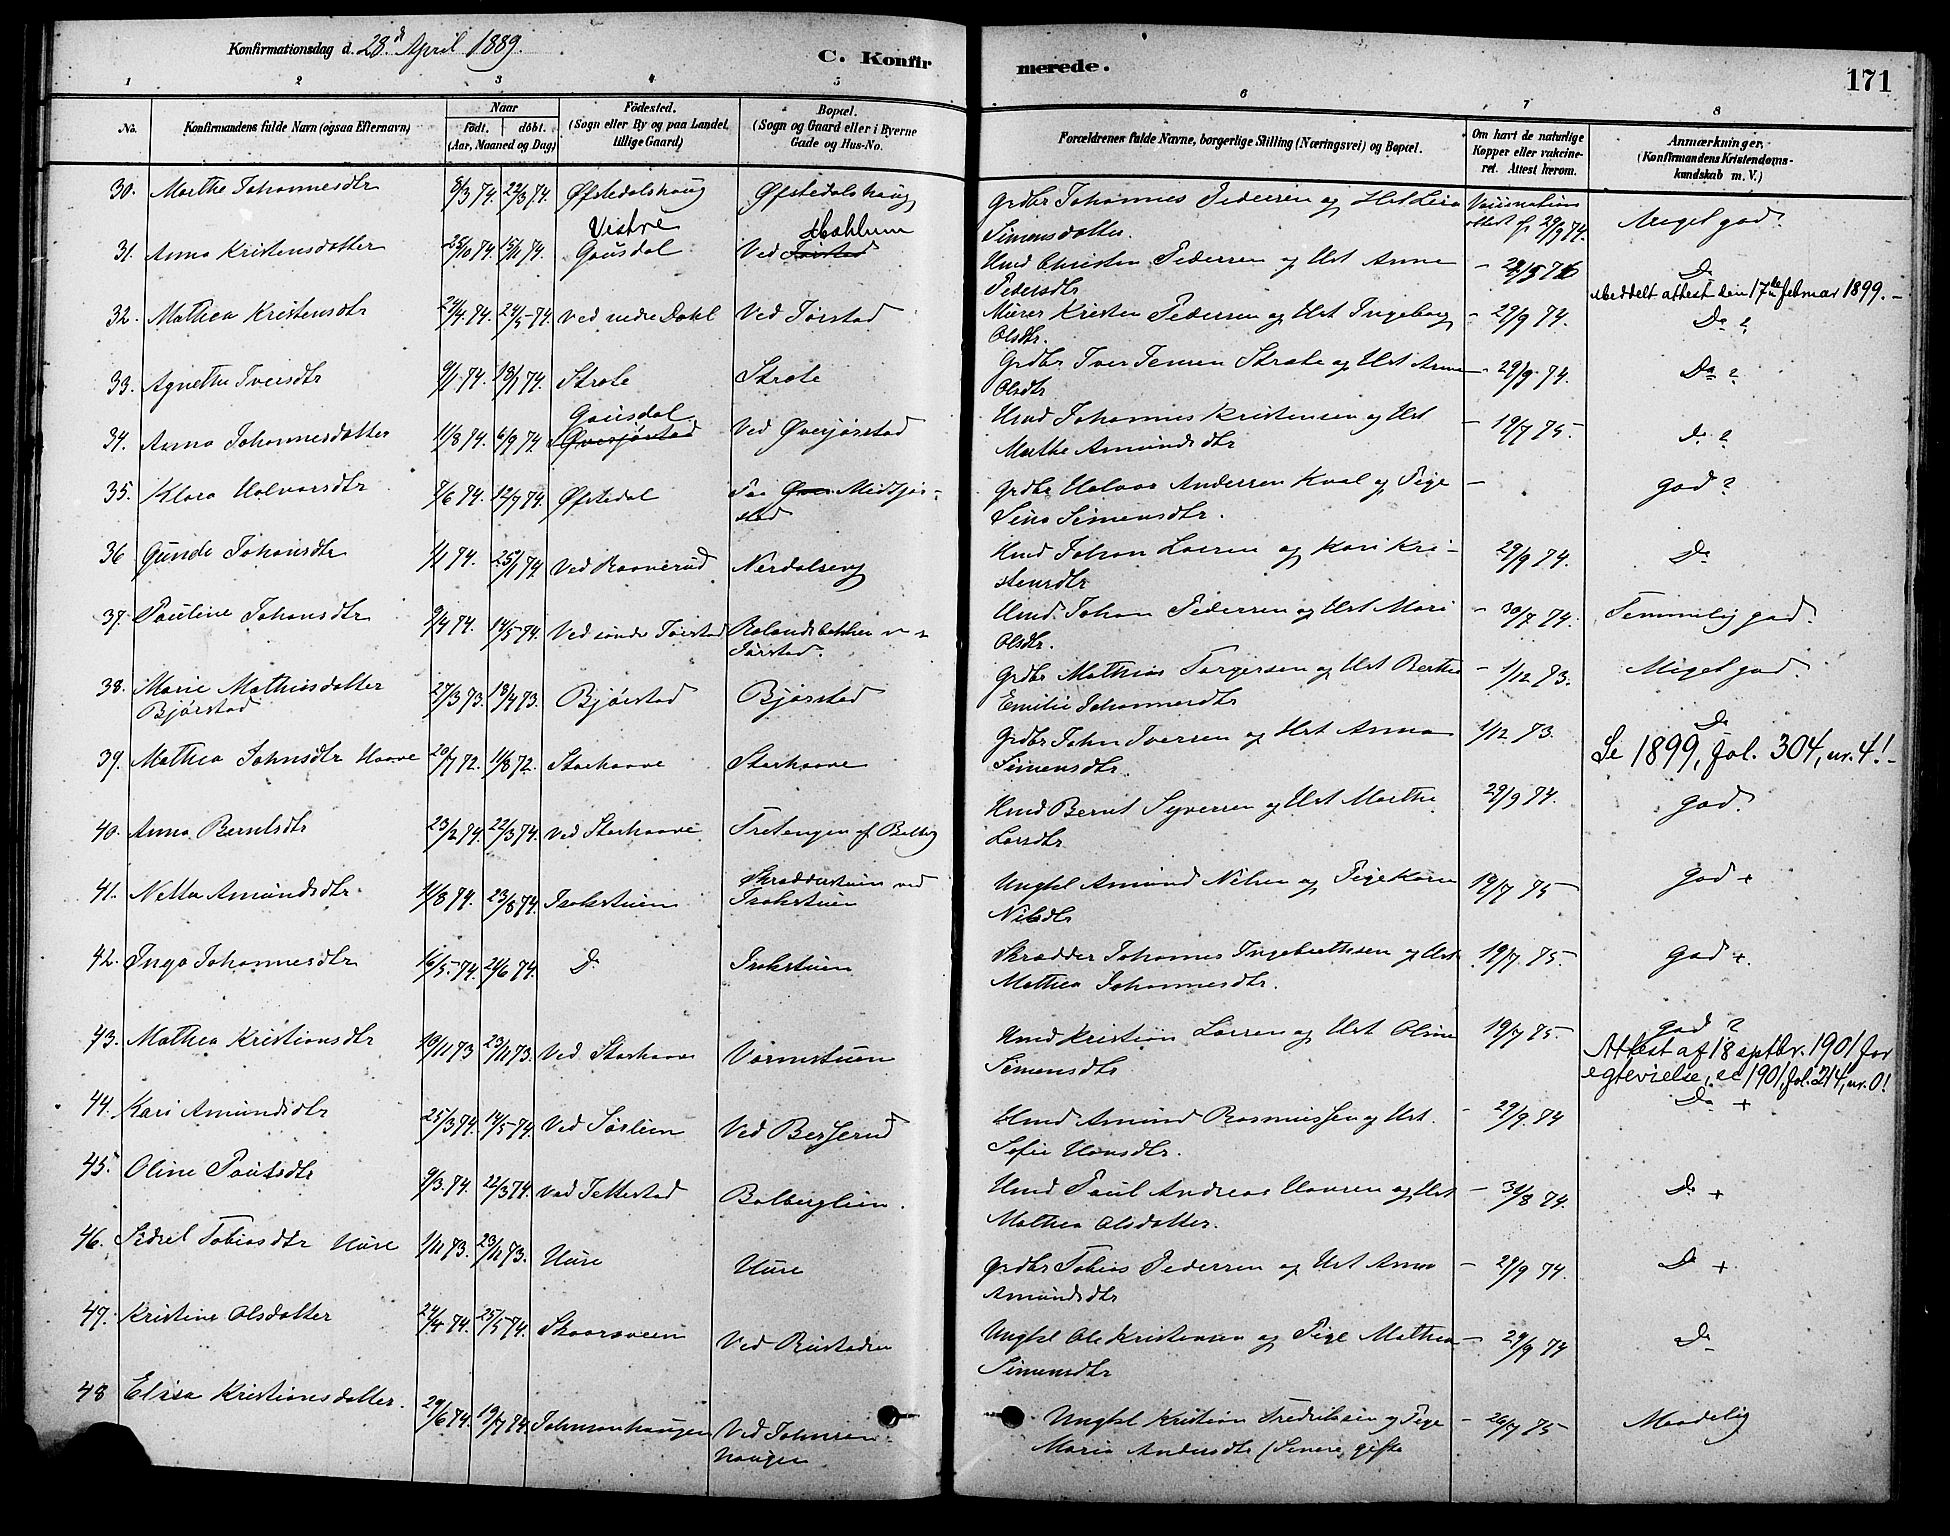 Konfirmationsdag d. 28.d April 1889.
C. Konfirmerede.
171
1 2 3 4 5 6 7 8
No.
Konfirmandens fulde Navn (ogsaa Efternavn)
Naar
födt. döbt.
(Aar, Maaned og Dag)
Födested.
(Sogn eller By og paa Landet tillige Gaard)
Bopæl.
(Sogn og Gaard eller i Byerne Gade og Hus-No.
Forældrenes fulde Navne, borgerlige Stilling (Næringsvei) og Bopæl.
Om havt de naturlige Kopper eller vakcineret. Attest herom.
Anmærkninger.
(Konfirmandens Kristendomskundskab m. V.)
30. Marthe Johannesdtr 8/3 74. 22/3 74. Øfstedalshaug Øfstedalshaug Grdbr Johannes Pedersen og Ust Lisa Simensdatter. Vaccinationsattest af 29/9 74. Meget god.
31. Anna Kristensdatter 25/10 74. 15/11 74. Vestre Gausdal Ved Tørstad Hmd Christen Pedersen og Ust Anne Pedersdtr Do
Meddelt attest den 17de februar 1899.-
32. Mathea Kristensdtr 24/4 74. 24/5 74. Ved nedre Dahl Ved Tørstad Murer Kristen Pedersen og Ust Ingeborg Olsdtr. - 29/9 74. Do ?
33. Agnethe Iversdtr 9/1 74. 18/1 74. Stræte Stræte Grdbr Iver Jensen Stræte og Ust Anne Olsdtr - 29/9 74. Do ?
34. Anna Johannesdatter 11/8 74. 6/9 74. Gausdal Øverjørstad Ved Øverjørstad Hmd Johannes Kristensen og Ust Marthe Amundsdtr - 19/7 75. Do ?
35. Klara Halvorsdtr 7/6 74. 12/7 74. Øfstedal Paa Midtjørstad Grdbr Halvor Andersen Kval og Pige Sina Simensdtr. - god ?
36 Gunda Johansdtr 1/1 74. 25/1 74. Ved Raanerud Nerdalseng Hmd Johan Larsen og Kari Kristensdtr 29/9 74. Do
37. Pauline Johansdtr 9/4 74. 14/5 74. Ved søndre Tørstad Rolandsbakken v Tørstad. Hmd. Johan Pedersen og Ust Mari Olsdtr. - 30/7 74. Temmelig god.
38. Marie Mathiasdatter Bjørstad 27/3 73. 13/4 73. Bjørstad Bjørstad Grdbr Mathias Torgersen og Ust Berthe Emilie Johannesdtr - 1/12 73. Meget god.
39. Mathea Johnsdtr Haave 20/7 72. 11/8 72. Storhaave Storhaave Grdbr John Iversen og Ust Anna Simensdtr. 1/12 73. Do
Se 1899, fol. 304, nr. 4!-
40. Anna Berntsdtr 23/2 74. 22/3 74. Ved Storhaave Tretengen af Balberg Hmd Bernt Syversen og Ust Marthe Larsdtr 29/9 74. god.
41. Netta Amundsdtr. 1/8 74. 23/8 74. Isakstuen Skredderstuen ved Isakstuen Ungkl Amund Nilsen og Pige Karen Nilsdtr 19/7 75 god +
42. Inga Johannesdtr 16/5 74. 21/6 74. Do Isakstuen Skrædder Johannes Ingebrethsen og Ust Mathea Johannesdtr. 19/7 75. god +.
43. Mathea Kristiansdtr 19/11 73 23/11 73. Ved Storhaave Varmstuen Hmd Kristian Larsen og Ust Oline Simensdtr 19/7 75. god ?
Attest af 18 septbr. 1901 for egtevielse, se 1901, fol. 214, nr. 0!
44. Kari Amundsdtr 25/3 74. 14/5 74. Ved Sørlien Ved Berserud Hmd Amund Rasmussen og Ust. Sofie Hansdtr. - 29/9 74 Do +
45. Oline Paulsdtr 9/3 74. 22/3 74. Ved Jettestad Balberglien. Hmd Paul Andreas Hansen og Ust Mathea Olsdatter. - 31/8 74. Do +
46. Sidsel Tobiasdtr Hure 1/11 73. 23/11 73. Hure Hure Grdbr Tobias Pedersen og Ust Anna Amundsdtr - 29/9 74. Do +
47. Kristine Olsdatter 24/4 74. 25/5 74. Skaarsveen Ved Rustaden Ungkl Ole Kristensen og Pige Mathea Simensdtr - 29/9 74 Do
48 Elisa Kristiansdatter. 29/6 74. 19/7 74. Johnsenhaugen Ved Johnsenhaugen Ungkl Kristian Fredriksen og Pige Maria Andersdtr (senere gifte - 26/7 75 Maadelig